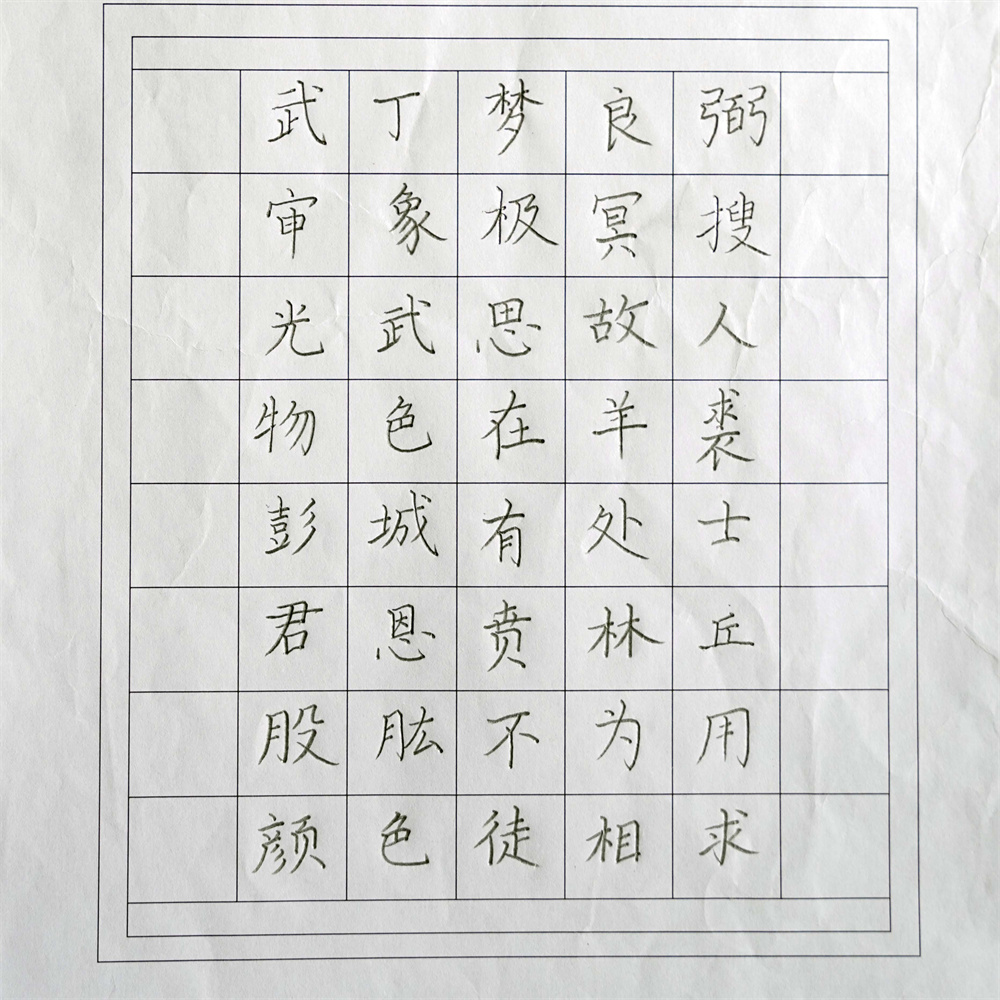 武丁梦良弼
审象极冥搜
光武思故人
物色在羊裘
彭城有处士
君恩贲林丘
股肱不为用
颜色徒相求